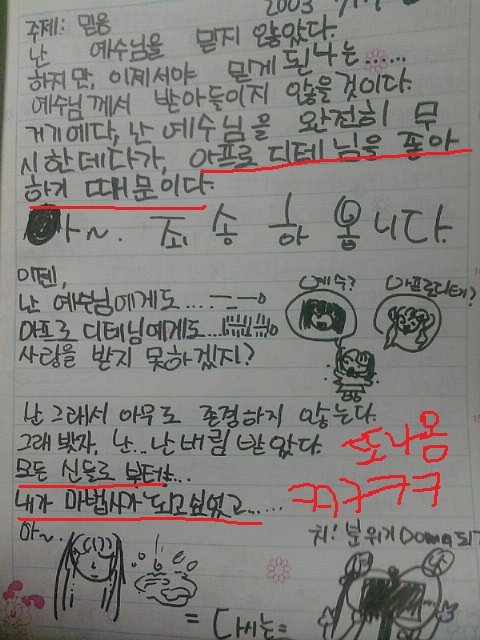 주제: 믿음
2003
난 예수님을 믿지 않았다.
하지만, 이제서야 믿게 된 나는......
예수님께서 받아들이지 않을것이다.
거기에다, 난 예수님을 완전히 무
시한데다가, 아프로디테님을 좋아
하기 때문이다.
아~. 죄송하옵니다.
이젠,
난 예수님에게도...
아프로디테님에게도...
사랑을 받지 못하겠지?
예수?
아프로디테?
난 그래서 아무도 존경하지 않는다.
그래 봤자, 난...난 버림 받았다.
또나옴
모든 신들로 부터...
ㅋㅋㅋㅋ
내가 마법사가 되고싶었고......
아~..
치! 분위기
= 다시는=